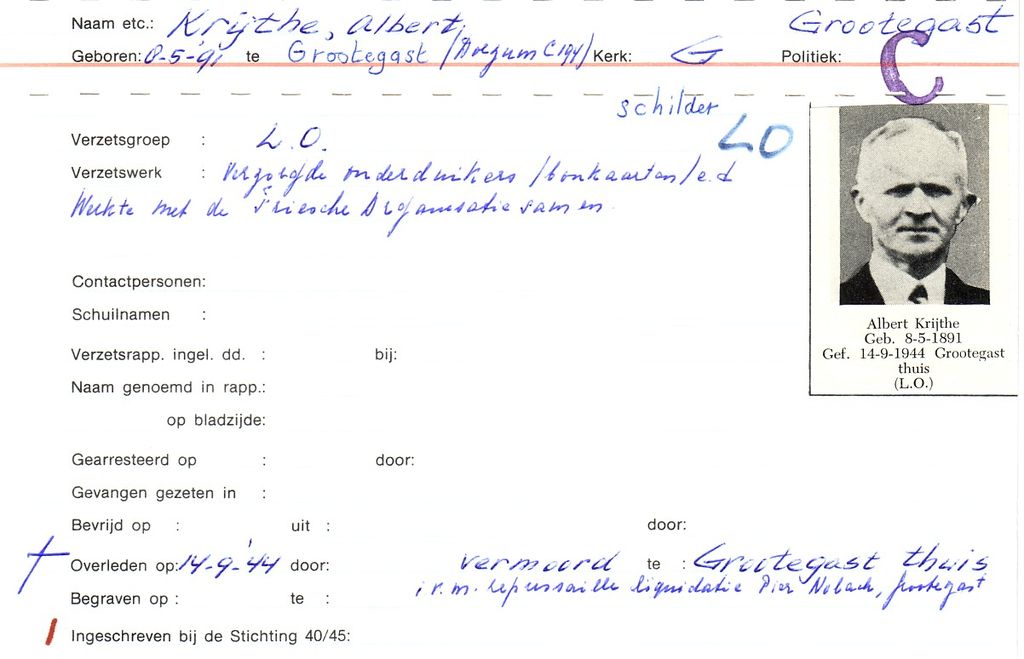 Naam etc.: Krijthe, Albert, Grootegast
Geboren: 8-5-'91 te Grootegast / Kerk: G Politiek: C
schilder
LO
Verzetsgroep : L.O.
Verzetswerk : Verzorgde onderduikers / bonkaarten / e.d
Werkte met de Friesche Organisatie samen.
Contactpersonen:
Schuilnamen :
Verzetsrapp. ingel. dd. : bij:
Naam genoemd in rapp.:
op bladzijde:
Gearresteerd op : door:
Gevangen gezeten in :
Bevrijd op : uit : door:
Overleden op: 14-9-'44 door: vermoord te : Grootegast thuis
i.v.m. represaille liquidatie Pier Nobach, Grootegast
Begraven op : te :
Ingeschreven bij de Stichting 40/45:
Albert Krijthe
Geb. 8-5-1891
Gef. 14-9-1944 Grootegast
thuis
(L.O.)